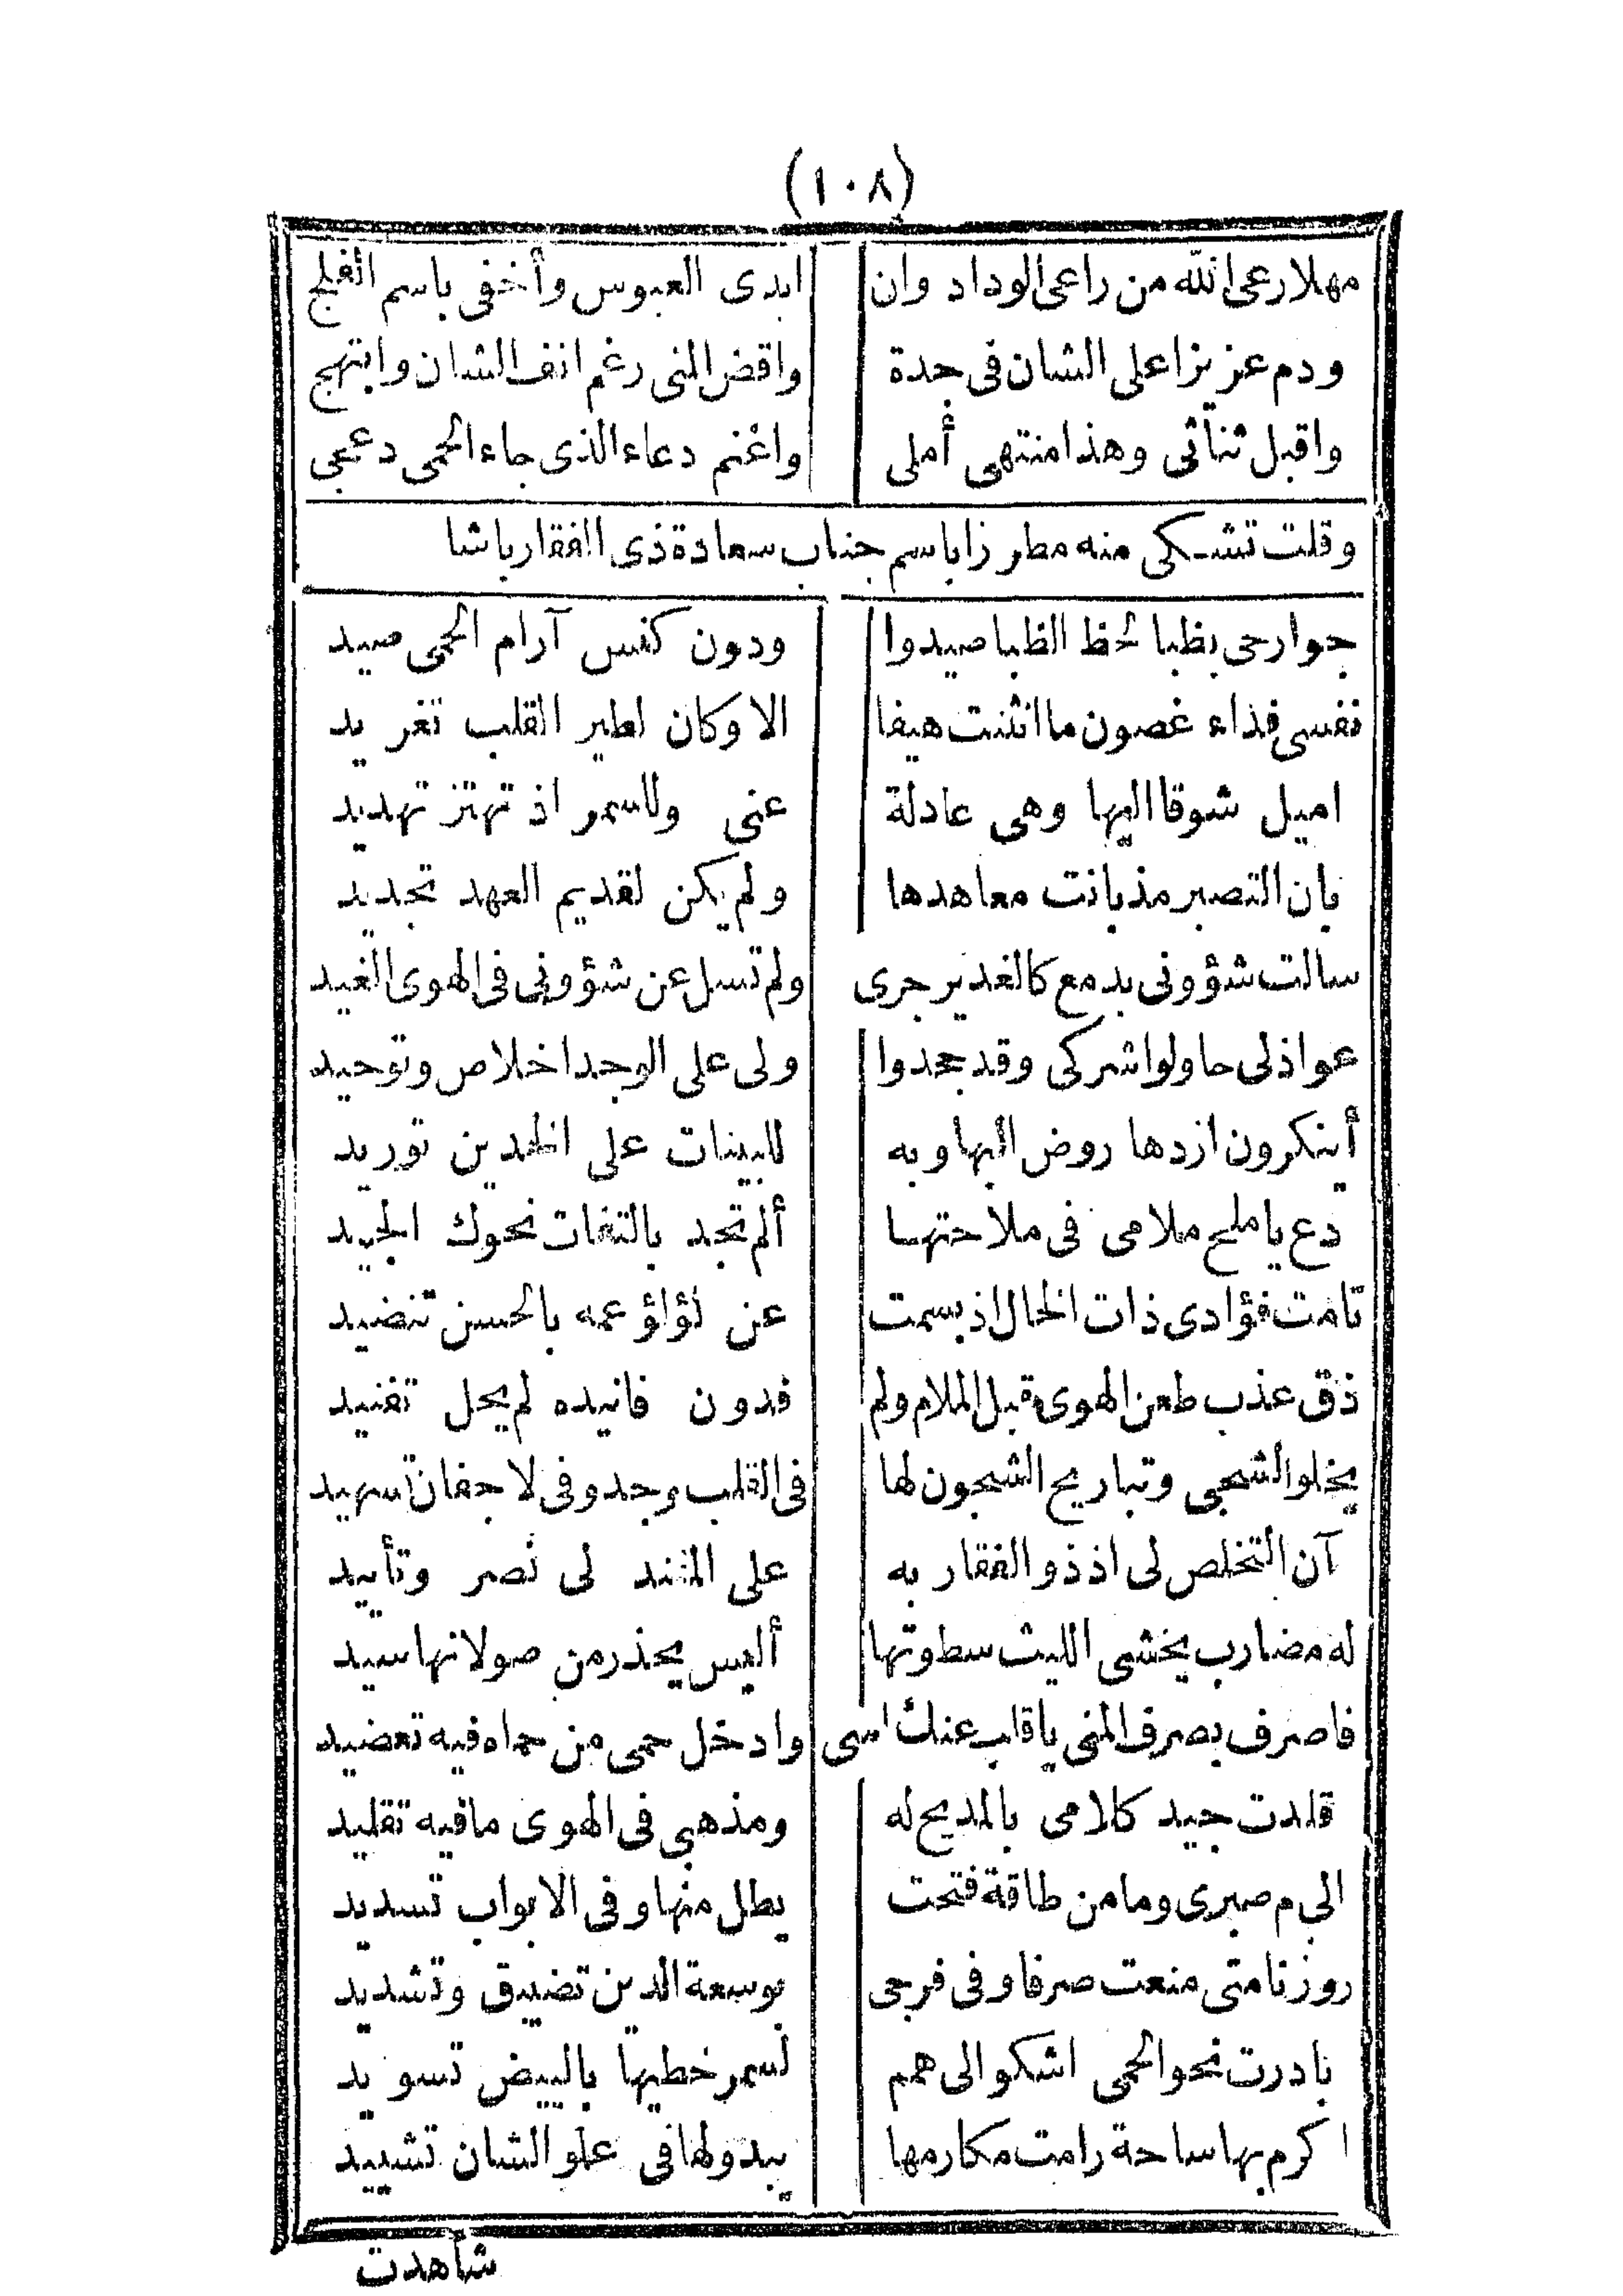 (١٠٨)
مهلا رعى الله من راعى الوداد وان ابدى العبوس وأخفى باسم الفلج
ودم عزيزا على الشان فى جدة واقض المنى رغم انف الشان وابتهج
واقبل ثنائى وهذا منتهى أملى واغنم دعاء الذى جاء الحمى دعجى
وقلت تشكى منه مطرزا باسم جناب سعادة ذى الفقار باشا
جوارحى بظبا لحظ الظبا صيدوا ودون كنس آرام الحمى صيد
نفسى فداء غصون ما انثنت هيفا الا وكان لطير القلب تغريد
اميل شوقا اليها وهى عادلة عنى وللسمر اذ تهتز تهديد
بان التصبر مذ بانت معاهدها ولم يكن لقديم العهد تجديد
سالت شؤونى بدمع كالغدير جرى ولم تسل عن شؤونى فى الهوى الغيد
عواذلى حاولوا شركى وقد جحدوا ولى على الوجد اخلاص وتوحيد
أينكرون ازدها روض البها وبه للبينات على الخدين توريد
دع يا مليح ملامى فى ملاحتها ألم تجد بالتفات نحوك الجيد
تامت فؤادى ذات الخال اذ بسمت عن لؤلؤ عمه بالحسن تنضيد
ذق عذب طعن الهوى قبل الملام ولم فدون فانيده لم يحل تفنيد
يخلو الشجى وتباريح الشجون لها فى القلب وجد وفى لاجفان تسهيد
آن التخلص لى اذ ذو الفقار به على المفند لى نصر وتأييد
له مضارب يخشى الليث سطوتها أليس يحذر من صولاتها سيد
فاصرف بصرف المنى يا قلب عنك اسى وادخل حمى من حماه فيه تعضيد
قلدت جيد كلامى بالمديح له ومذهبى فى الهوى ما فيه تقليد
الى م صبرى وما من طاقة فتحت يطل منها وفى الابواب تسديد
روزنامتى منعت صرفا وفى فرجى بوسعة الدين تضييق وتشديد
بادرت نحو الحمى اشكو الى همم لسمر خطيها بالبيض تسويد
اكرم بها ساحة رامت مكارمها يبدو لها فى علو الشان تشييد
شاهدت